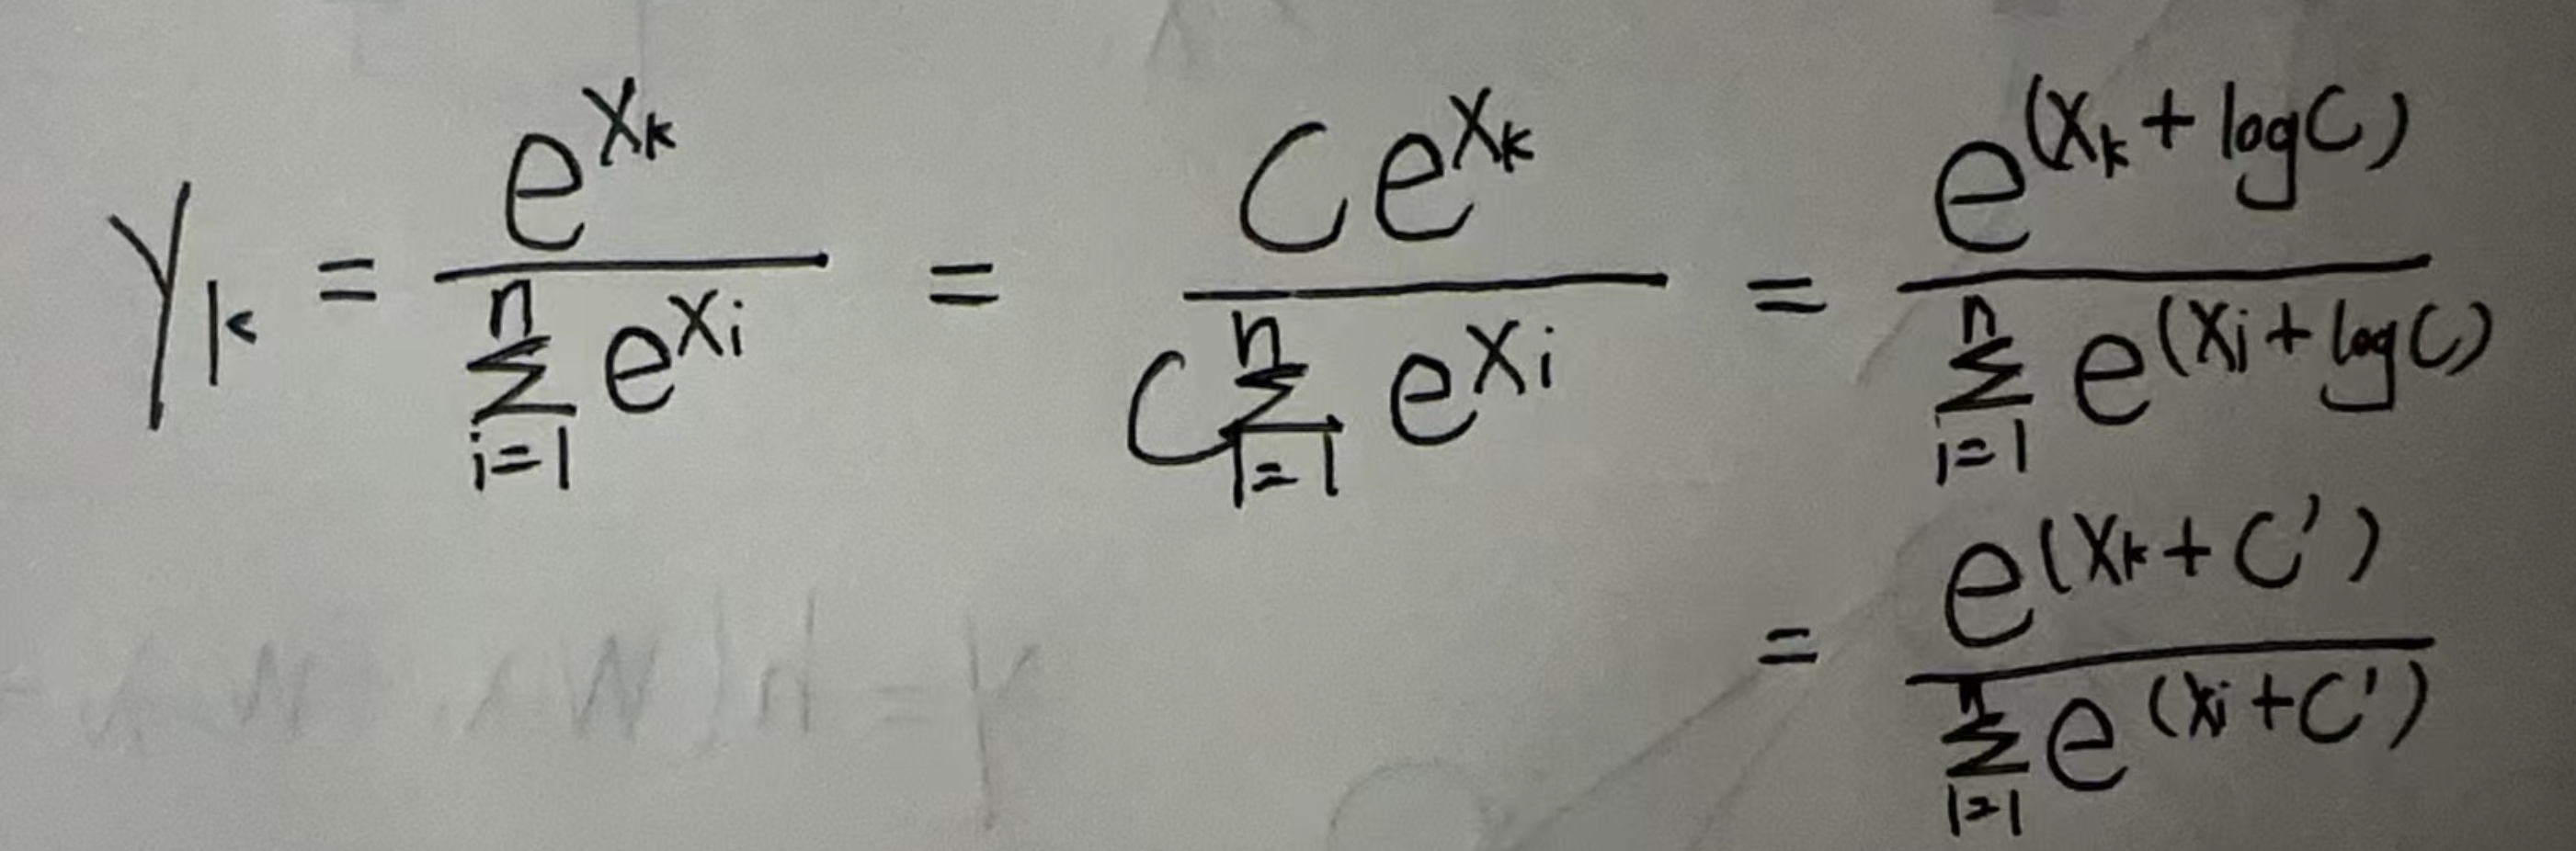 y_k = \frac{e^{x_k}}{\sum_{i=1}^{n} e^{x_i}} = \frac{C e^{x_k}}{C \sum_{i=1}^{n} e^{x_i}} = \frac{e^{(x_k + \log C)}}{\sum_{i=1}^{n} e^{(x_i + \log C)}}
= \frac{e^{(x_k + C')}}{\sum_{i=1}^{n} e^{(x_i + C')}}